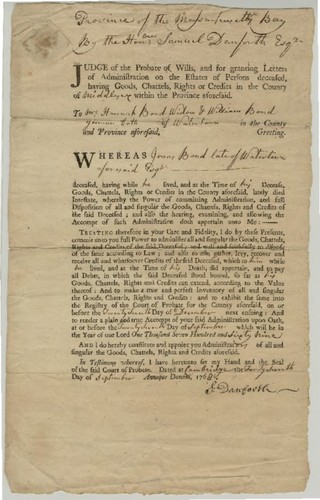 Province of the Massachusetts Bay
By the Hon.ble Samuel Danforth Esqr.
JUDGE of the Probate of Wills, and for granting Letters
of Administration on the Estates of Persons deceased,
having Goods, Chattels, Rights or Credits in the County
of Middlesex within the Province aforesaid.
To Mrs Hannah Bond Widow & William Bond
Yeoman both of Watertown in the County
and Province aforesaid, Greeting.
WHEREAS Jonas Bond late of Watertown
aforesaid Esqr.
deceased, having while he lived, and at the Time of his Decease,
Goods, Chattels, Rights or Credits in the County aforesaid, lately died
Intestate, whereby the Power of committing Administration, and full
Disposition of all and singular the Goods, Chattels, Rights and Credits of
the said Deceased; and also the hearing, examining, and allowing the
Accompt of such Administration doth appertain unto Me:—
TRUSTING therefore in your Care and Fidelity, I do by these Presents,
commit unto you full Power to administer all and singular the Goods, Chattels,
Rights and Credits of the said Deceased, and well and faithfully to dispose
of the same according to Law; and also to ask, gather, levy, recover and
receive all and whatsoever Credits of the said Deceased, which to him while
he lived, and at the Time of his Death, did appertain, and to pay
all Debts, in which the said Deceased stood bound, so far as his
Goods, Chattels, Rights and Credits can extend, according to the Value
thereof: And to make a true and perfect Inventory of all and singular
the Goods, Chattels, Rights and Credits: and to exhibit the same into
the Registry of the Court of Probate for the County aforesaid, on or
before the Day of December next ensuing: And
to render a plain and true Accompt of your said Administration upon Oath,
at or before the Day of September which will be in
the Year of our Lord One Thousand Seven Hundred and Sixty Nine
AND I do hereby constitute and appoint you Administrators of all and
singular the Goods, Chattels, Rights and Credits aforesaid.
In Testimony whereof, I have hereunto set my Hand and the Seal
of the said Court of Probate. Dated at Cambridge the
Day of September Annoque Domini, 1768.
S. Danforth